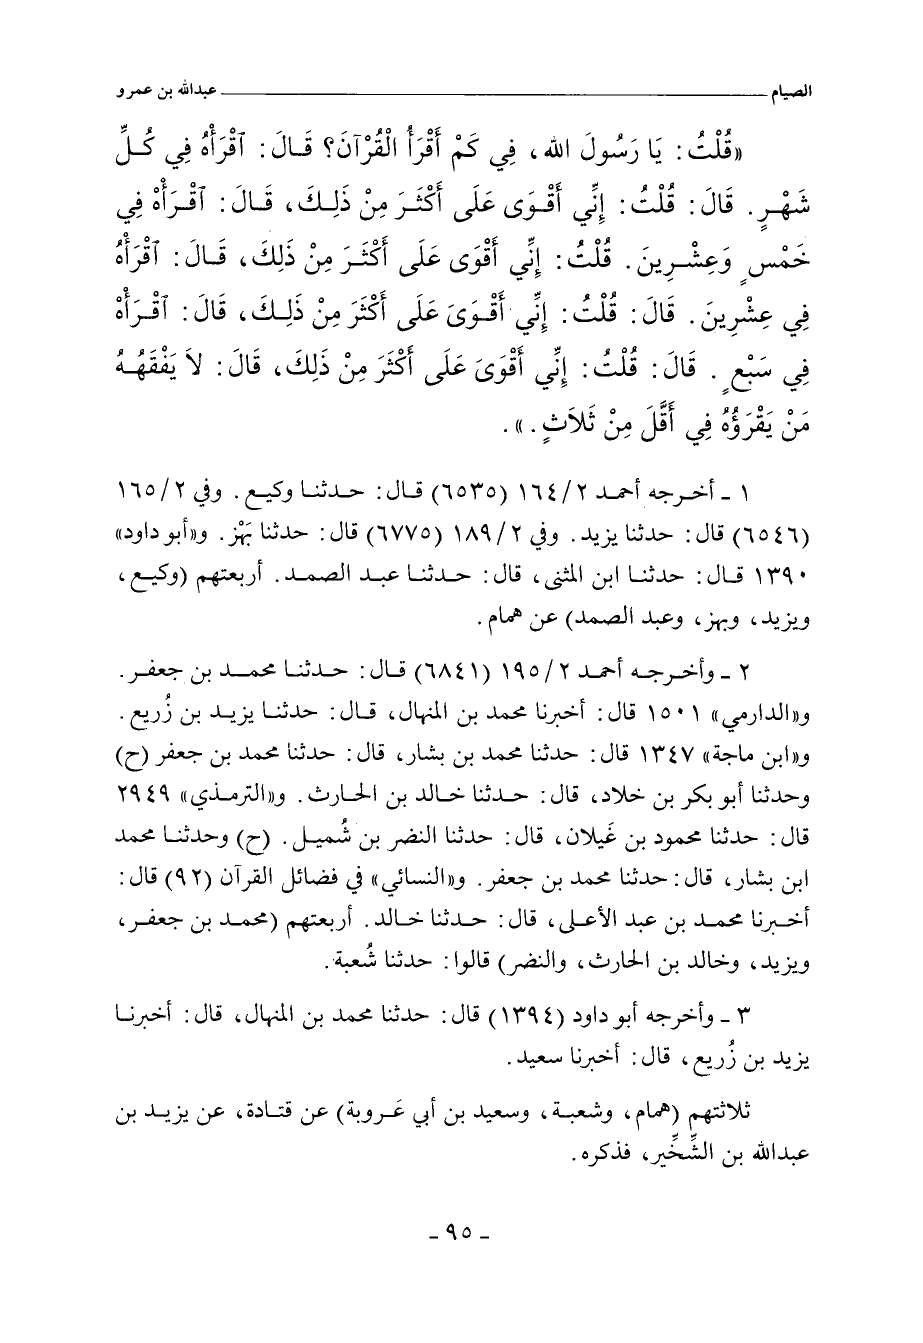 الصيام ـــــــــــــــــــــــــ عبدالله بن عمرو
«قُلْتُ: يَا رَسُولَ الله، فِي كَمْ أَقْرَأُ الْقُرْآنَ؟ قَالَ: ٱقْرَأْهُ فِي كُلِّ
شَهْرٍ. قَالَ: قُلْتُ: إِنِّي أَقْوَى عَلَى أَكْثَرَ مِنْ ذَلِكَ، قَالَ: ٱقْرَأْهُ فِي
خَمْسٍ وَعِشْرِينَ. قُلْتُ: إِنِّي أَقْوَى عَلَى أَكْثَرَ مِنْ ذَلِكَ، قَالَ: ٱقْرَأْهُ
فِي عِشْرِينَ. قَالَ: قُلْتُ: إِنِّي أَقْوَىَ عَلَى أَكْثَرَ مِنْ ذَلِكَ، قَالَ: ٱقْرَأْهُ
فِي سَبْعٍ. قَالَ: قُلْتُ: إِنِّي أَقْوَىَ عَلَى أَكْثَرَ مِنْ ذَلِكَ، قَالَ: لاَ يَفْقَهُهُ
مَنْ يَقْرَؤُهُ فِي أَقَلَّ مِنْ ثَلاَثٍ.».
١ ـ أخرجه أحمد ٢/ ١٦٤ (٦٥٣٥) قال: حدثنا وكيع. وفي ٢/ ١٦٥
(٦٥٤٦) قال: حدثنا يزيد. وفي ٢/ ١٨٩ (٦٧٧٥) قال: حدثنا بَهْز. و«أبو داود»
١٣٩٠ قال: حدثنا ابن المثنى، قال: حدثنا عبد الصمد. أربعتهم (وكيع،
ويزيد، وبهز، وعبد الصمد) عن همام.
٢ ـ وأخرجه أحمد ٢/ ١٩٥ (٦٨٤١) قال: حدثنا محمد بن جعفر.
و«الدارمي» ١٥٠١ قال: أخبرنا محمد بن المنهال، قال: حدثنا يزيد بن زُريع.
و«ابن ماجة» ١٣٤٧ قال: حدثنا محمد بن بشار، قال: حدثنا محمد بن جعفر (ح)
وحدثنا أبو بكر بن خلاد، قال: حدثنا خالد بن الحارث. و«الترمذي» ٢٩٤٩
قال: حدثنا محمود بن غَيلان، قال: حدثنا النضر بن شُميل. (ح) وحدثنا محمد
ابن بشار، قال: حدثنا محمد بن جعفر. و«النسائي» في فضائل القرآن (٩٢) قال:
أخبرنا محمد بن عبد الأعلى، قال: حدثنا خالد. أربعتهم (محمد بن جعفر،
ويزيد، وخالد بن الحارث، والنضر) قالوا: حدثنا شُعبة.
٣ ـ وأخرجه أبو داود (١٣٩٤) قال: حدثنا محمد بن المنهال، قال: أخبرنا
يزيد بن زُريع، قال: أخبرنا سعيد.
ثلاثتهم (همام، وشعبة، وسعيد بن أبي عَروبة) عن قتادة، عن يزيد بن
عبدالله بن الشِّخِّير، فذكره.
ـ ٩٥ ـ